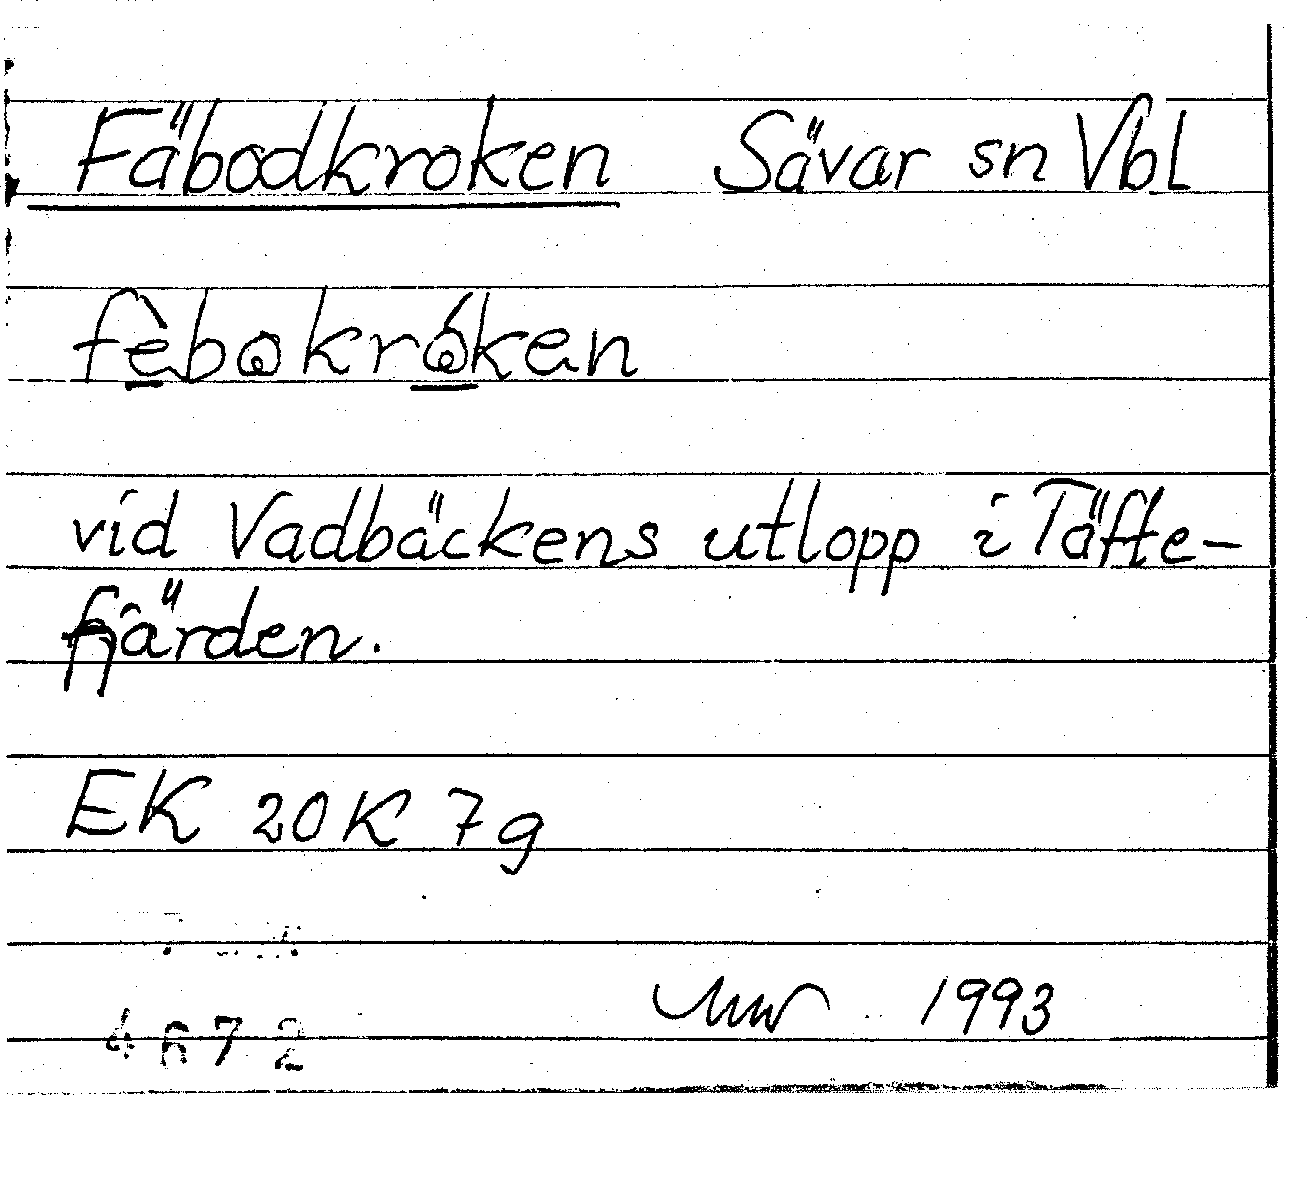 Fäbodkroken Sävar sn Vbl
fèbokróken
vid Vadbäckens utlopp i Täfte-
fjärden.
EK 20K 7g
1993
4672